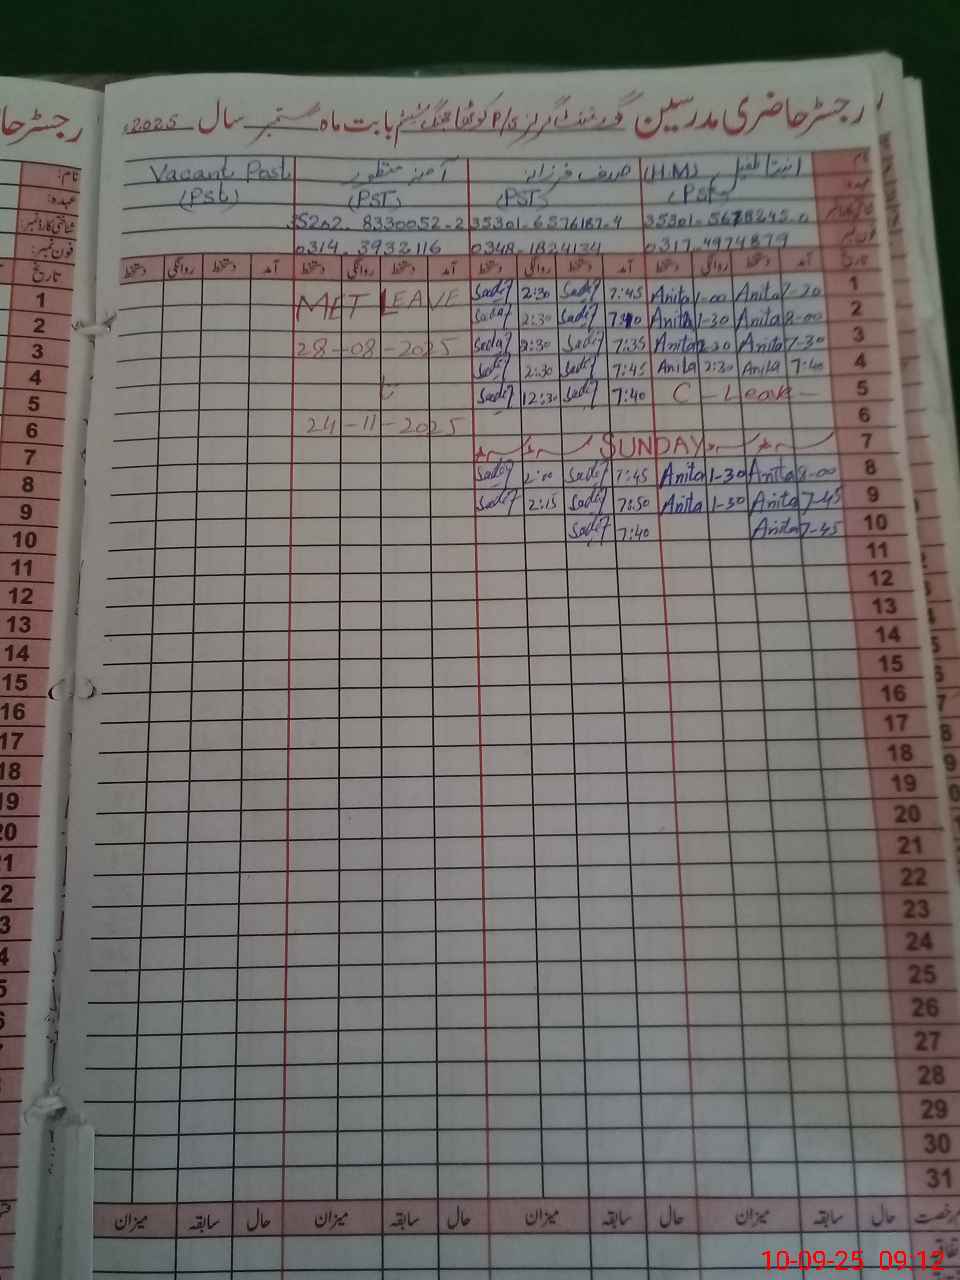 رجسٹر حاضری مدرسین گورنمنٹ گرلز P/S بابت ماہ ستمبر سال 2025ء
نام: انیتا طفیل (H.M) صدیف فرزانہ آمنہ منظور Vacant Post
عہدہ: (PST) (PST) (PST)
35301-5678245-0 35301-6576187-4 35202-8330052-2 شناختی کارڈ نمبر:
0317-4974879 0348-1824134 0314-3932116 فون نمبر:
تاریخ آمد دستخط روانگی دستخط آمد دستخط روانگی دستخط آمد دستخط روانگی دستخط آمد دستخط روانگی دستخط
MET LEAVE Sadif 2:30 Sadif 7:45 Anita 1-00 Anita 7-20 1
Sadif 2:30 Sadif Anita 1-30 Anita 8-00 2
28-08-2025 Sadif 2:30 Sadif 7:35 Anita Anita 7-30 3
Sadif 2:30 Sadif 7:45 Anita 2:30 Anita 7:40 4
to Sadif 12:30 Sadif 7:40 C-Leave- 5
24-11-2025 6
SUNDAY 7
Sadif 2:00 Sadif 7:45 Anita 1-30 Anita 8-00 8
Sadif 2:15 Sadif 7:50 Anita 1-30 Anita 7-45 9
Sadif 7:40 Anita 7-45 10
11
12
13
14
15
16
17
18
19
20
21
22
23
24
25
26
27
28
29
30
31
رخصت حال سابقہ میزان حال سابقہ میزان حال سابقہ میزان حال سابقہ میزان
10-09-25 09:12